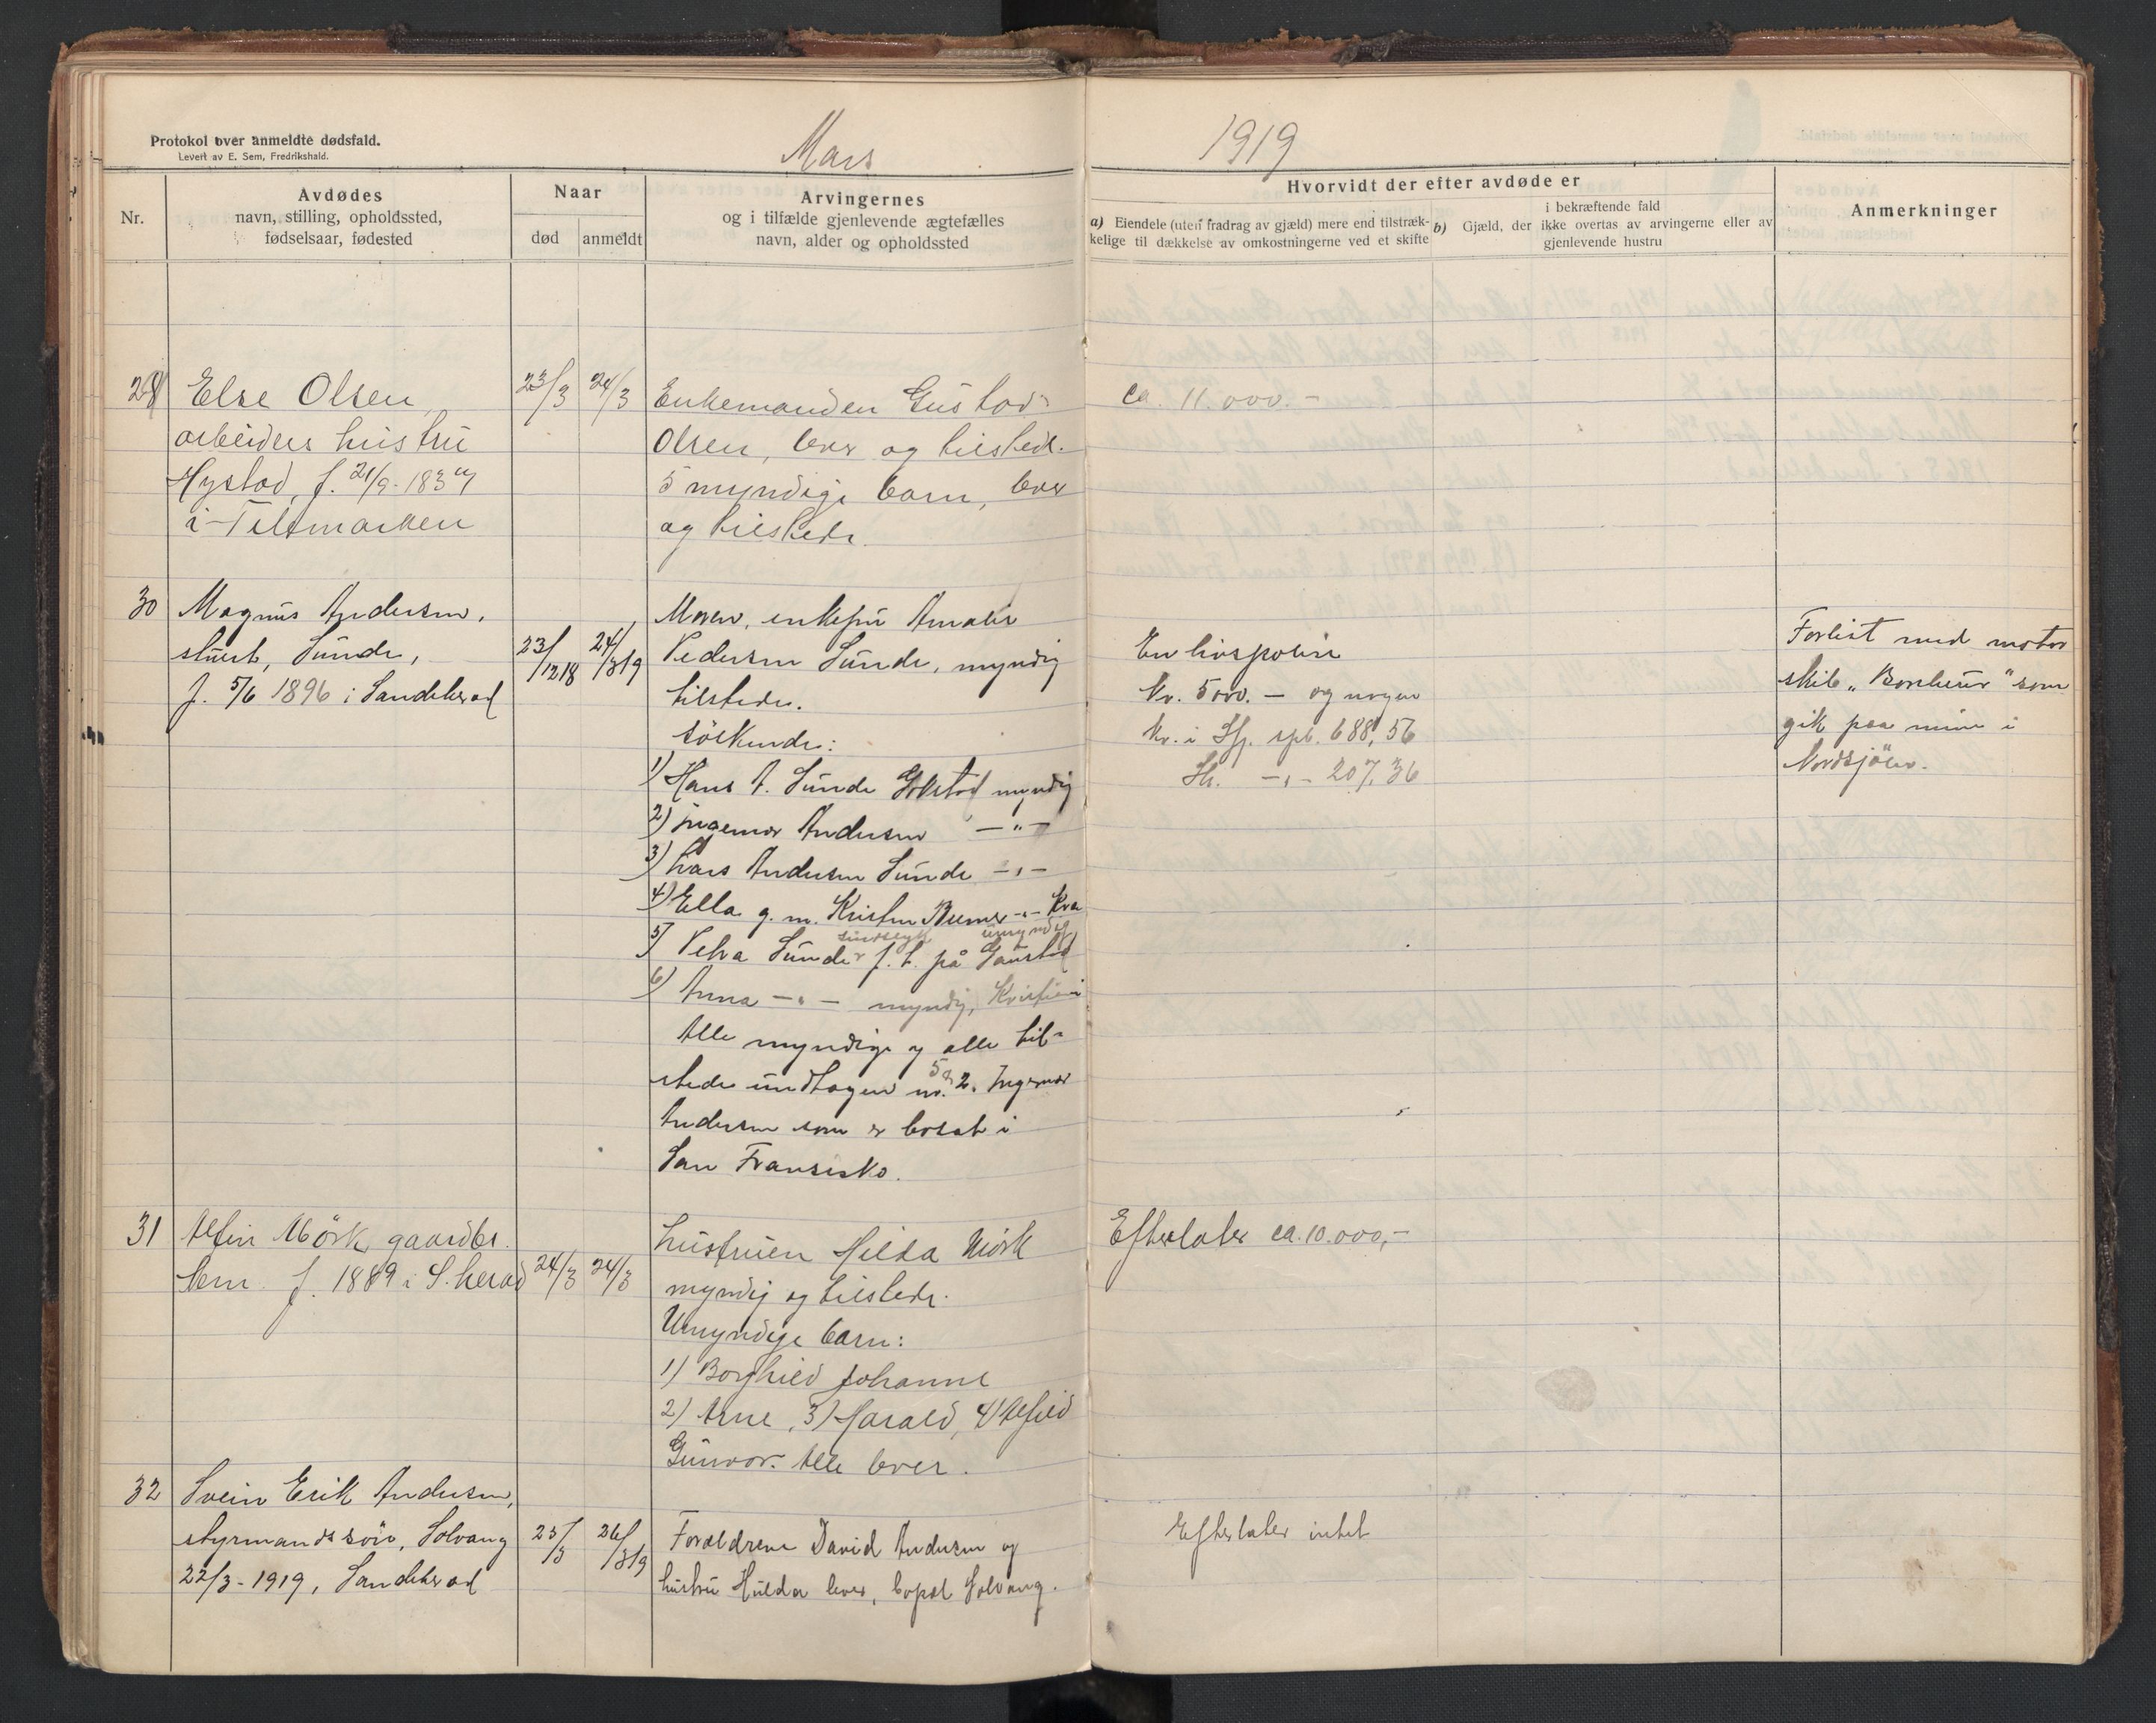 Protokol over anmeldte dødsfald.
Levert av E. Sem, Fredrikshald.
Mars
1919
Nr.
Avdødes
navn, stilling, opholdssted,
fødselsaar, fødested
Naar
død
anmeldt
Arvingernes
og i tilfælde gjenlevende ægtefælles
navn, alder og opholdssted
Hvorvidt der efter avdøde er
a) Eiendele (uten fradrag av gjæld) mere end tilstræk-
kelige til dækkelse av omkostningerne ved et skifte
b) Gjæld, der
i bekræftende fald
ikke overtas av arvingerne eller av
gjenlevende hustru
Anmerkninger
Else Olsen,
arbeiders hustru
Hystad, f. 21/9-1837
i Telemarken
23/3
24/3
Enkemanden Gustav
Olsen, lever og tilstede.
5 myndige barn, lever
og tilstede.
ca. 11.000.-
30
Magnus Andersen,
stuert, Sunde,
f. 5/6 1896 i Sandeherad
23/12 18
24/3 19
Moren, enkefru Amalie
Pedersen Sunde, myndig
tilstede.
Söskende:
1) Hans A. Sunde Gokstad myndig
2) Ingemar Andersen -"-
3) Lars Andersen Sunde -"-
4) Ella g. m. Kristen -"-
sindssyk umyndig
5) Petra Sunde f. t. på Gaustad
6) Anna -"- myndig, Kristiania
Alle myndige og alle til-
5 &
stede undtagen nr. 2. Ingemar
Andersen som er bosat i
San Fransisko.
En livspolise
kr. 5000.- og nogen
kr. i Sfj. spb. 688,56
Sh. -"- 207,36
Forlist med motor
skib "Bonheur" som
gik paa mine i
Nordsjöen.
31
Alfin Mörk, gaardbr.
f. 1889 i S.herad
24/3
24/3
Hustruen Hilda Mörk
myndig og tilstede.
Umyndige barn:
1) Borghild Johanne
2) Arne, 3) Harald, 4) Alfhild
Gunvor. Alle lever.
Efterlater ca. 10.000,-
32
Svein Erik Andersen,
styrmandssön, Solvang
22/3-1919, Sandeherad
23/3
26/3 19
Forældrene David Andersen og
hustru Hulda lever, bopæl Solvang.
Efterlater intet